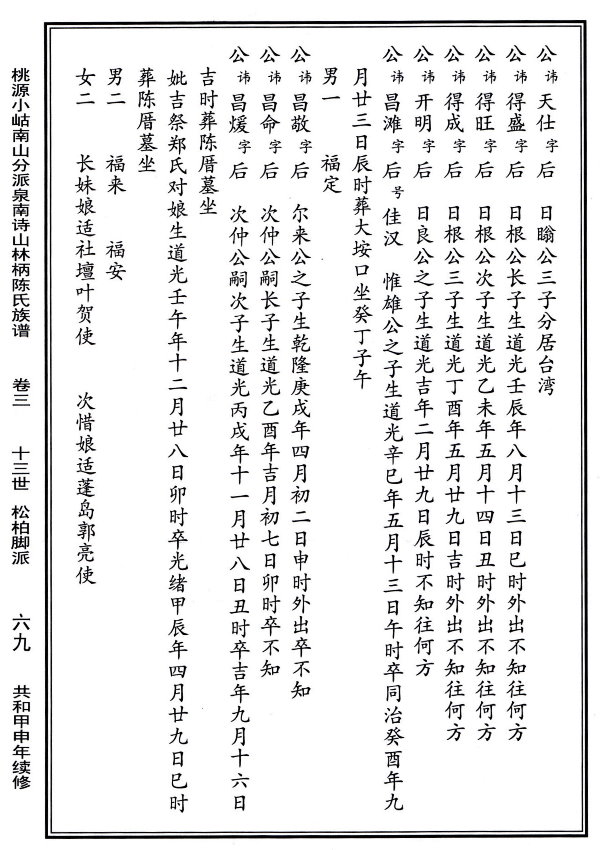 公讳天仕字后 日瞈公三子分居台湾
公讳得盛字后 日根公长子生道光壬辰年八月十三日巳时外出不知往何方
公讳得旺字后 日根公次子生道光乙未年五月十四日丑时外出不知往何方
公讳得成字后 日根公三子生道光丁酉年五月廿九日吉时外出不知往何方
公讳开明字后 日良公之子生道光吉年二月廿九日辰时不知往何方
公讳昌滩字后号佳汉 惟雄公之子生道光辛巳年五月十三日午时卒同治癸酉年九
月廿三日辰时葬大垵口坐癸丁子午
男一 福定
公讳昌敬字后 尔来公之子生乾隆庚戌年四月初二日申时外出卒不知
公讳昌命字后 次仲公嗣长子生道光乙酉年吉月初七日卯时卒不知
公讳昌煖字后 次仲公嗣次子生道光丙戌年十一月廿八日丑时卒吉年九月十六日
吉时葬陈厝墓坐
妣吉祭郑氏对娘生道光壬午年十二月廿八日卯时卒光绪甲辰年四月廿九日巳时
葬陈厝墓坐
男二 福来 福安
女二 长妹娘适社坛叶贺使 次惜娘适蓬岛郭亮使
桃源小岵南山分派泉南诗山林柄陈氏族谱 卷三 十三世 松柏脚派 六九 共和甲申年续修